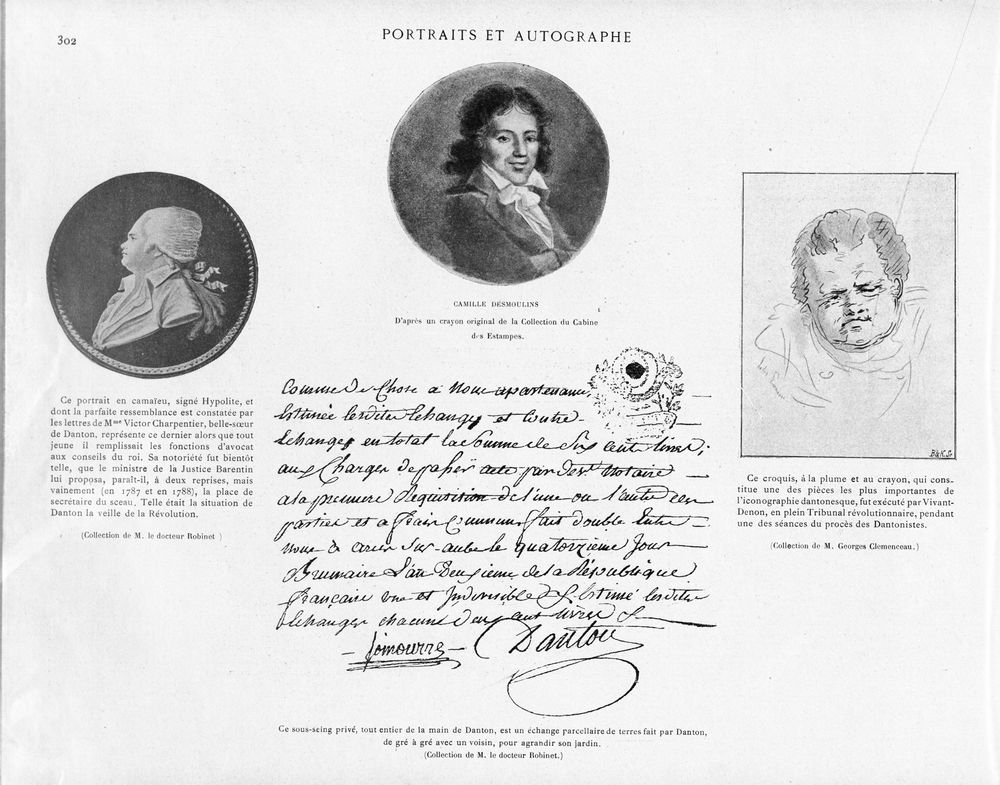 302
PORTRAITS ET AUTOGRAPHE
CAMILLE DESMOULINS
D'après un crayon original de la Collection du Cabine
des Estampes.
Ce portrait en camaïeu, signé Hypolite, et
dont la parfaite ressemblance est constatée par
les lettres de Mme Victor Charpentier, belle-sœur
de Danton, représente ce dernier alors que tout
jeune il remplissait les fonctions d'avocat
aux conseils du roi. Sa notoriété fut bientôt
telle, que le ministre de la Justice Barentin
lui proposa, paraît-il, à deux reprises, mais
vainement (en 1787 et en 1788), la place de
secrétaire du sceau. Telle était la situation de
Danton la veille de la Révolution.
(Collection de M. le docteur Robinet )
Comme de Chose a Nous apartenance
Estimée lesdits Echanges et Contre
Echanges en total la Somme de Six cent livres;
aux Charges de passer acte pardevt Notaire
a la premiere Requisition de l'une ou l'autre des
parties et a frais Communs fait double Entre
nous a arcis Sur aube le quatorzieme Jour
Brumaire L'an Deuxieme de la République
française une et Indivisible &. Estimé lesdits
Echanges chacune deux cent livres &
Danton
B&K.Sc
Ce croquis, à la plume et au crayon, qui cons-
titue une des pièces les plus importantes de
l'iconographie dantonesque, fut exécuté par Vivant-
Denon, en plein Tribunal révolutionnaire, pendant
une des séances du procès des Dantonistes.
(Collection de M. Georges Clemenceau.)
Ce sous-seing privé, tout entier de la main de Danton, est un échange parcellaire de terres fait par Danton,
de gré à gré avec un voisin, pour agrandir son jardin.
(Collection de M. le docteur Robinet.)